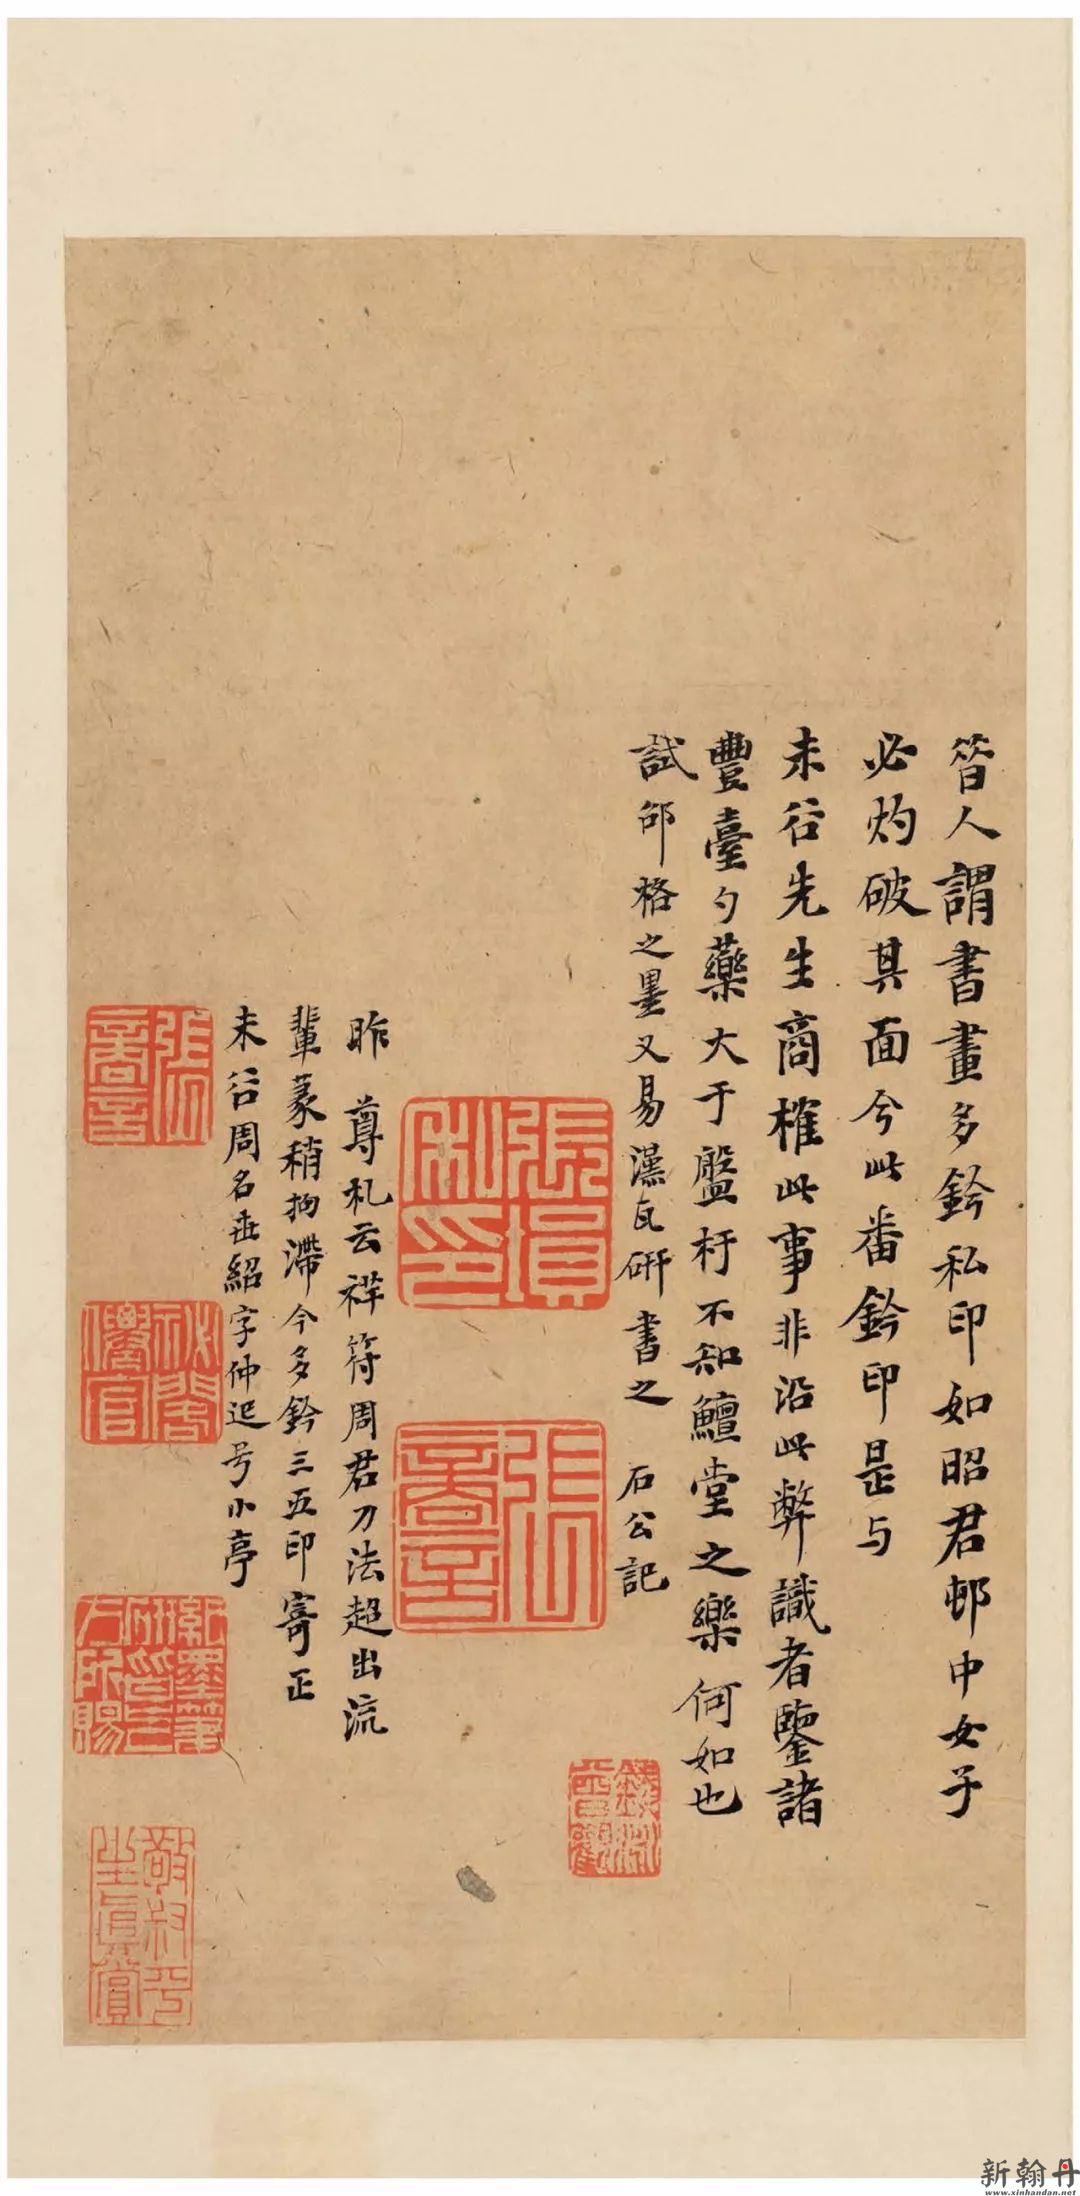 昝人謂書畫多鈐私印如昭君邨中女子
必灼破其面今此番鈐印是与
未谷先生商榷此事非沿此弊識者鑒諸
豐臺勺藥大于盤杅不知鱣堂之樂何如也
試邵格之墨又易漢瓦硏書之 石公記
張塤私印
張吉金
昨 尊札云祥符周君刀法超出流
輩篆稍拘滯今多鈐三五印寄正
未谷周名世紹字仲迟号小亭
新翰丹
www.xinhandan.net